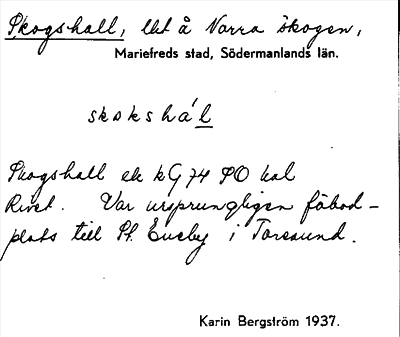 Skogshall, lht å Norra skogen,
Mariefreds stad, Södermanlands län.
skokshá l
Skogshall ek kG 74 SO kal
Rivet. Var ursprungligen fäbod-
plats till St. Eneby i Toresund.
Karin Bergström 1937.